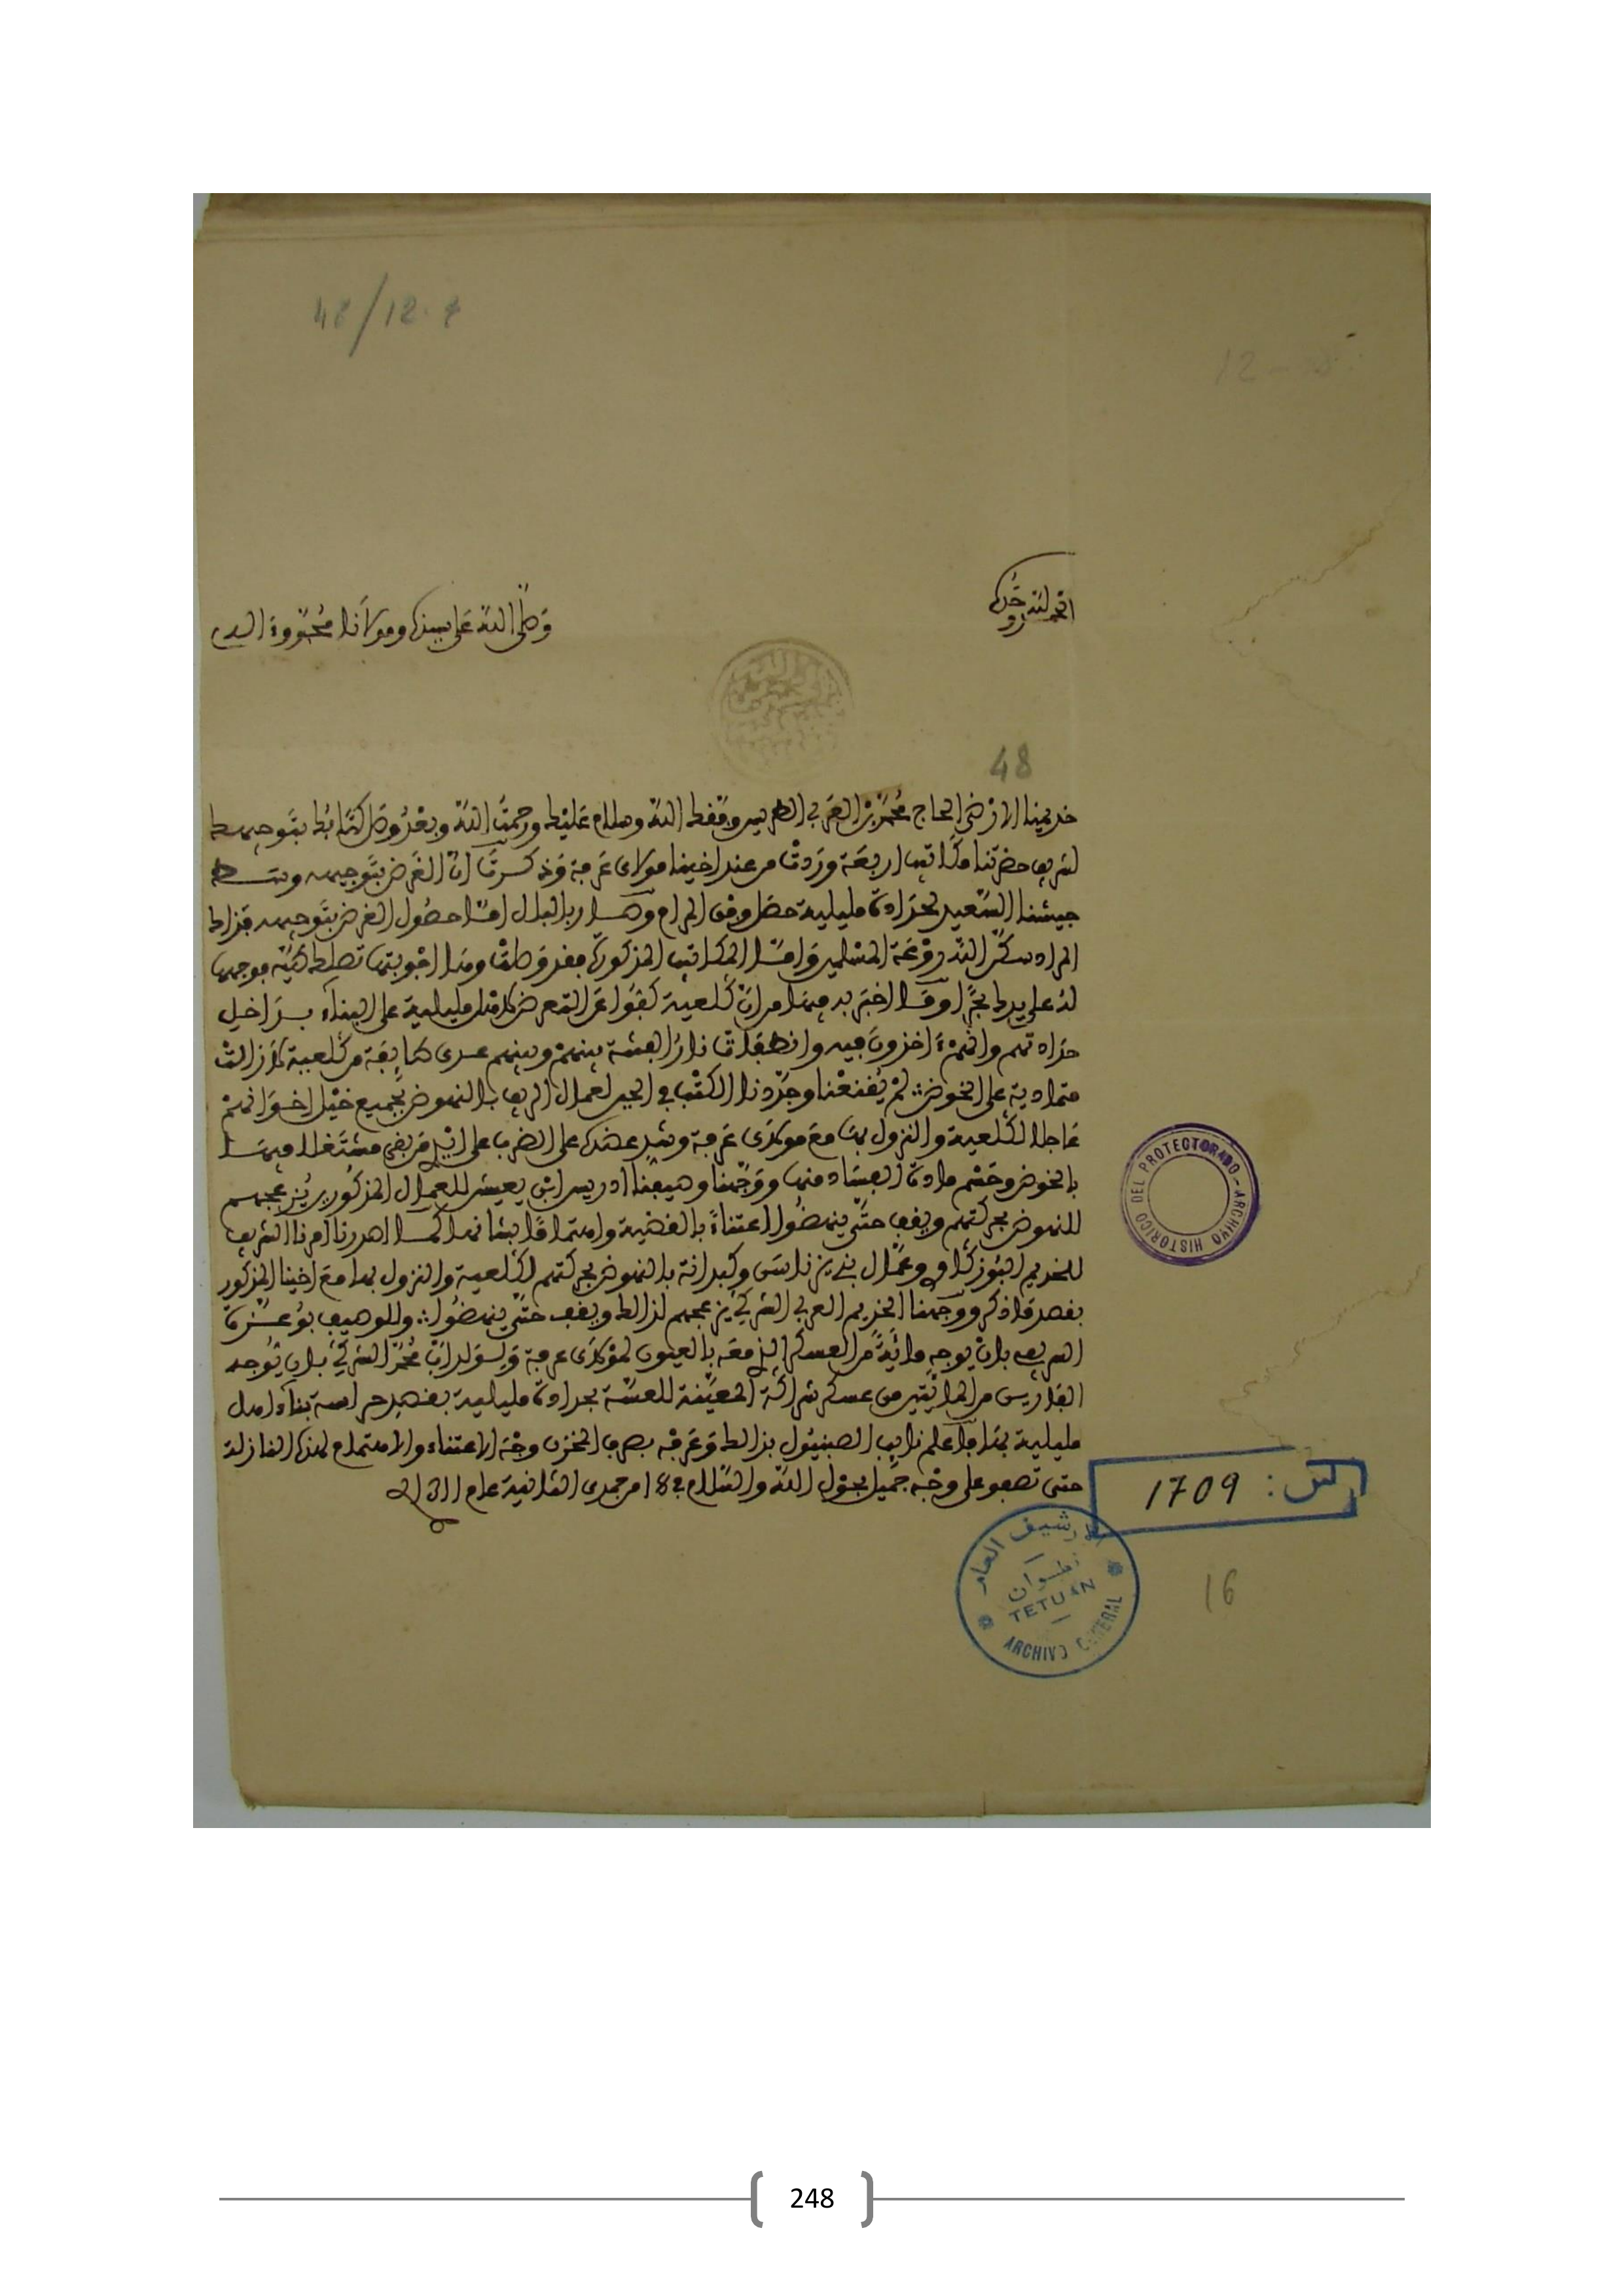 48/12.
12 -
الحمد لله وحده
وصلى الله على سيدنا ومولانا محمد وءاله
48
خديمنا الارضى الحاج محمد بن العربي الطريس وفقك الله وسلام عليك ورحمت الله وبعد وصل كتابك بتوجيهك
لشريف حضرتنا مكاتب اربعة وردت من عند اخينا مولاي عرفة وذكرت ان الغرض بتوجيهه
جيشنا السعيد لحدادة مليلية حصل وفق المرام وصار بالبال اما حصول الغرض بتوجيهه فذاك
المراد شكر الله رفعة المسلمين واما المكاتب المذكورة فقد وصلت وهذا اجوبتها تصلك فوجهها
له على يدك وما اخبر به فيها من ان كلعية كفوا عن التعرض لاهل مليلية على البناء بداخل
حدادتهم وانهم اخذون فيه وانطفات نار الفتنة بينهم وبينهم عدى طايفة من كلعية لازالت
متمادية على الخوض لم يقنعنا وجددنا الكتب في الحين لعمال الريف بالنهوض بجميع خيل اخوانهم
عاجلا لكلعية والنزول بها مع مولاي عرفة وشد عضده على الضرب على ايد من بقي مشتغلا فيها
بالخوض وحسم مادة الفساد منها ووجهنا وصيفنا ادريس ابن يعيش للعمال المذكورين يزعجهم
للنهوض بحركتهم ويقف حتى ينهضوا اعتناء بالقضية واهتماما بشانها كما اصدرنا امرنا الشريف
للخديم البوزكاوي وعمال بني يزناسن وكبدانة بالنهوض بحركتهم لكلعية والنزول بها مع اخينا المذكور
بقصد ما ذكر ووجهنا الخديم العربي الشركي يزعجهم لذلك ويقف حتى ينهضوا وللوصيف بوعزة
الشريف بان يوجه مائة من العسكر الذي معه بالعيون لمولاي عرفة ولولد ابا محمد الشركي بان يوجد
الفاريس من المائتين من عسكر شراكة المعينة للعسة بحدادة مليلية بقصد حراسة بناء اهل
مليلية بها فاعلم نايب الصبنيول بذلك وعرفه بصرف المخزن وجه الاعتناء والاهتمام لهذه النازلة
حتى تصفو على وجه جميل بحول الله والسلام في 18 من جمدى الثانية عام 1311
ARCHIVO HISTORICO DEL PROTECTORADO
1709
الأرشيف العام
تطوان
TETUAN
ARCHIVO GENERAL
16
248